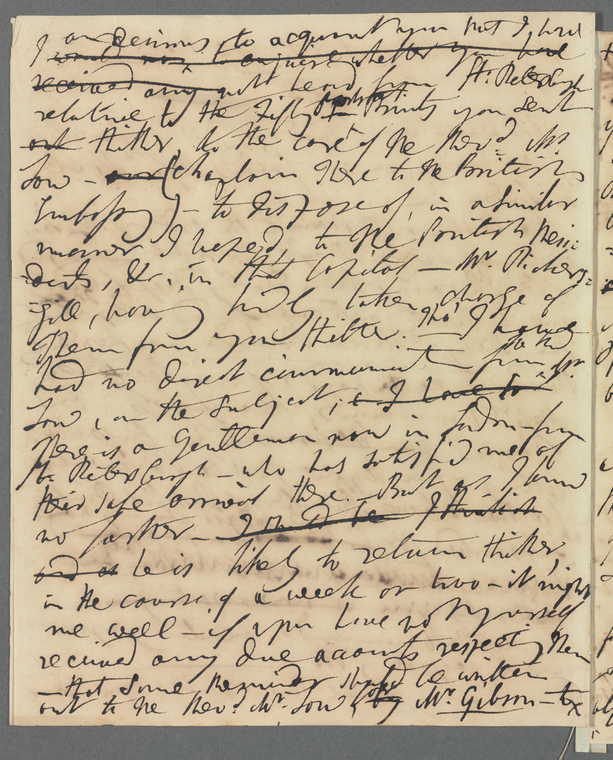 I am desirous to acquaint you that I have
would now to enquire whether you have
received any not heard from St. Petersburgh
relative to the Fifty Prints you sent
out thither, to the care of the Revd. Mr
Low – our (Chaplain there to the British
Embassy) – to dispose of, in a similar
manner I hoped, to the British Resi:
:dents, &c., in that Capital – Mr. Picker:
:gill, having kindly taken charge of
them from you thither. – Tho' I have
had no direct communication from
Low, on the Subject; as I have to
there is a Gentleman now in London from
St. Petersburgh – who has satisfied me of
their safe arrival there. – But as I know
no farther – I should be
and as he is likely to return thither
in the course of a week or two – it might
me well – if you have not yourself
received any due accounts respecting them
– that some Reminder should be written
out to the Revd. Mr. Low by Mr. Gibson – to